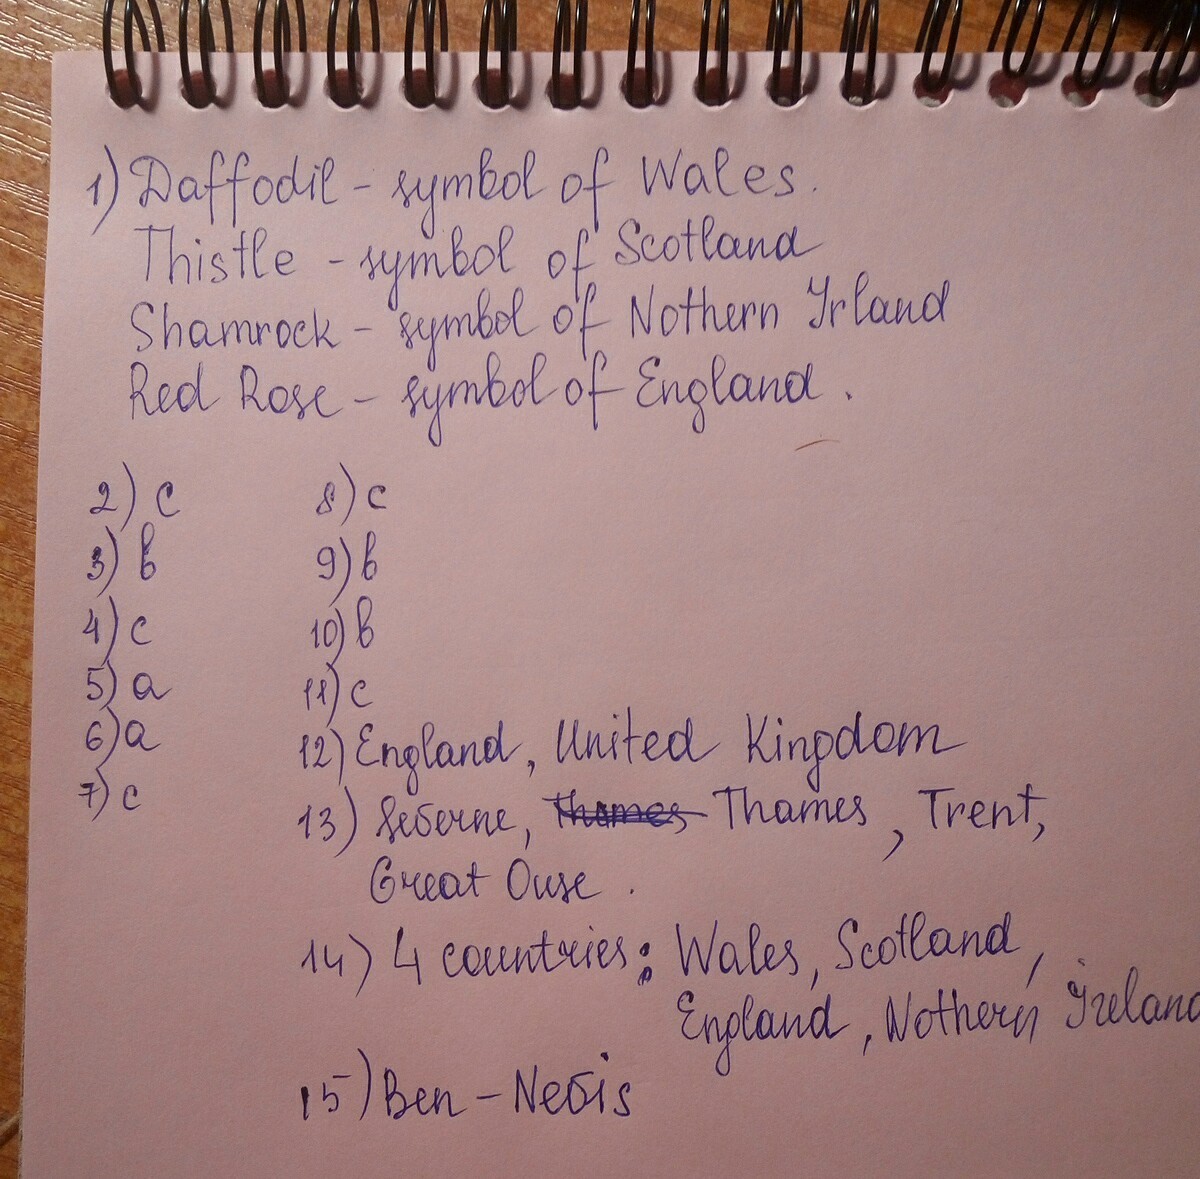 1) Daffodil - symbol of Wales.
Thistle - symbol of Scotland
Shamrock - symbol of Nothern Irland
Red Rose - symbol of England.
2) c
3) b
4) c
5) a
6) a
7) c
8) c
9) b
10) b
11) c
12) England, United Kingdom
13) Severne, Thames Thames, Trent,
Great Ouse.
14) 4 countries: Wales, Scotland,
England, Nothern Ireland
15) Ben - Nevis